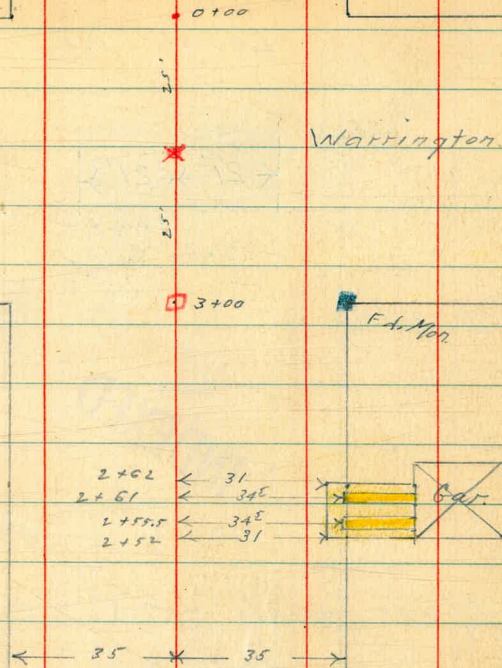 0+00
25'
Warrington
25'
3+00
Fd. Mon.
2+62 31
2+61 34⁵ Gar.
2+55.5 34⁵
2+52 31
35 35